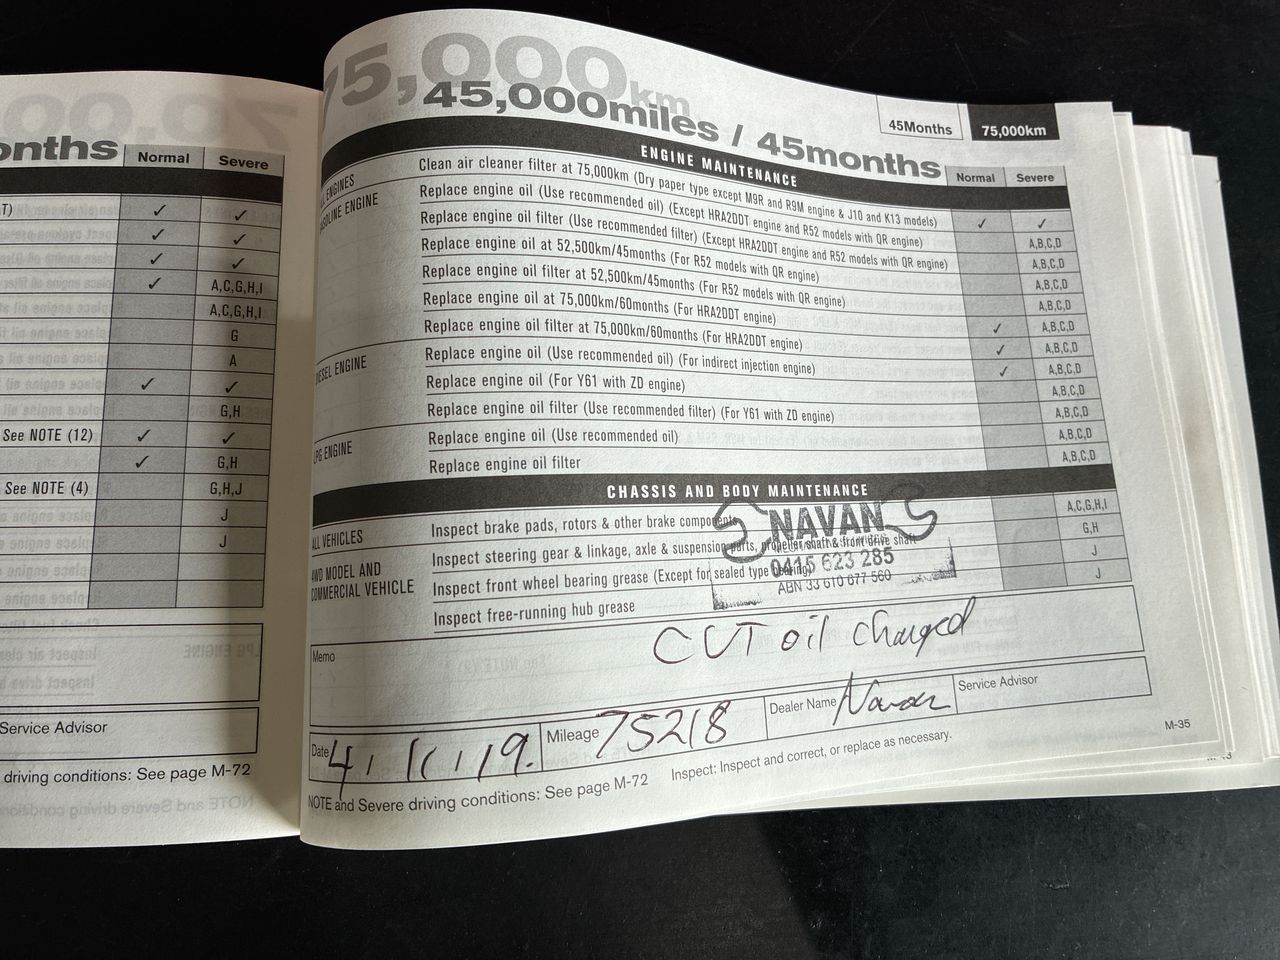 onths
Normal
Severe
T)
✓
✓
✓
✓
✓
✓
✓
A,C,G,H,I
A,C,G,H,I
G
A
✓
✓
G,H
See NOTE (12)
✓
✓
✓
G,H
See NOTE (4)
G,H,J
J
J
Service Advisor
driving conditions: See page M-72
75,000km
45,000miles / 45months
45Months
75,000km
ENGINE MAINTENANCE
Normal
Severe
ENGINES
Clean air cleaner filter at 75,000km (Dry paper type except M9R and R9M engine & J10 and K13 models)
✓
✓
GASOLINE ENGINE
Replace engine oil (Use recommended oil) (Except HRA2DDT engine and R52 models with QR engine)
A,B,C,D
Replace engine oil filter (Use recommended filter) (Except HRA2DDT engine and R52 models with QR engine)
A,B,C,D
Replace engine oil at 52,500km/45months (For R52 models with QR engine)
A,B,C,D
Replace engine oil filter at 52,500km/45months (For R52 models with QR engine)
A,B,C,D
Replace engine oil at 75,000km/60months (For HRA2DDT engine)
✓
A,B,C,D
Replace engine oil filter at 75,000km/60months (For HRA2DDT engine)
✓
A,B,C,D
DIESEL ENGINE
Replace engine oil (Use recommended oil) (For indirect injection engine)
✓
A,B,C,D
Replace engine oil (For Y61 with ZD engine)
A,B,C,D
Replace engine oil filter (Use recommended filter) (For Y61 with ZD engine)
A,B,C,D
LPG ENGINE
Replace engine oil (Use recommended oil)
A,B,C,D
Replace engine oil filter
A,B,C,D
CHASSIS AND BODY MAINTENANCE
ALL VEHICLES
Inspect brake pads, rotors & other brake components
A,C,G,H,I
Inspect steering gear & linkage, axle & suspension parts, propeller shaft & front drive shaft
G,H
4WD MODEL AND
COMMERCIAL VEHICLE
Inspect front wheel bearing grease (Except for sealed type bearing)
J
Inspect free-running hub grease
J
NAVAN
0415 623 285
ABN 33 610 677 560
Memo
CVT oil changed
Date 4/ 11/19.
Mileage 75218
Dealer Name Navan
Service Advisor
NOTE and Severe driving conditions: See page M-72
Inspect: Inspect and correct, or replace as necessary.
M-35